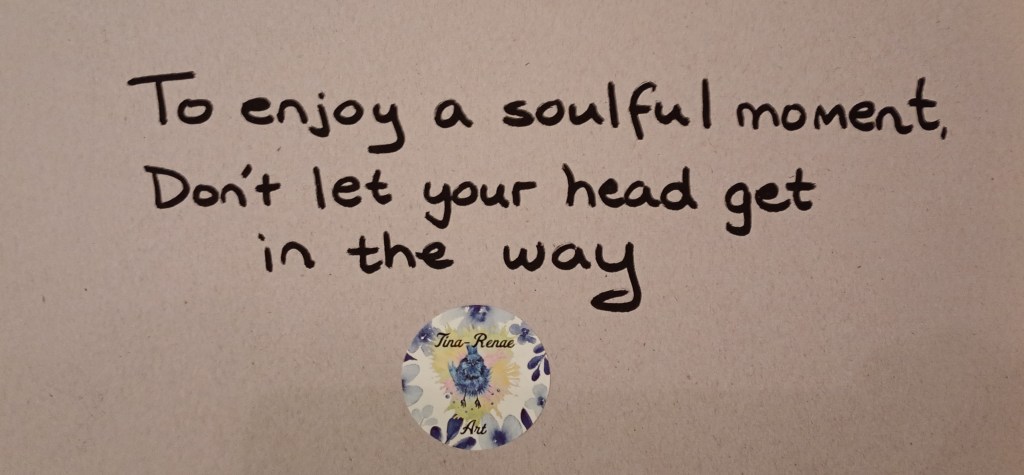 To enjoy a soulful moment,
Don't let your head get
in the way
Tina-Renae
Art